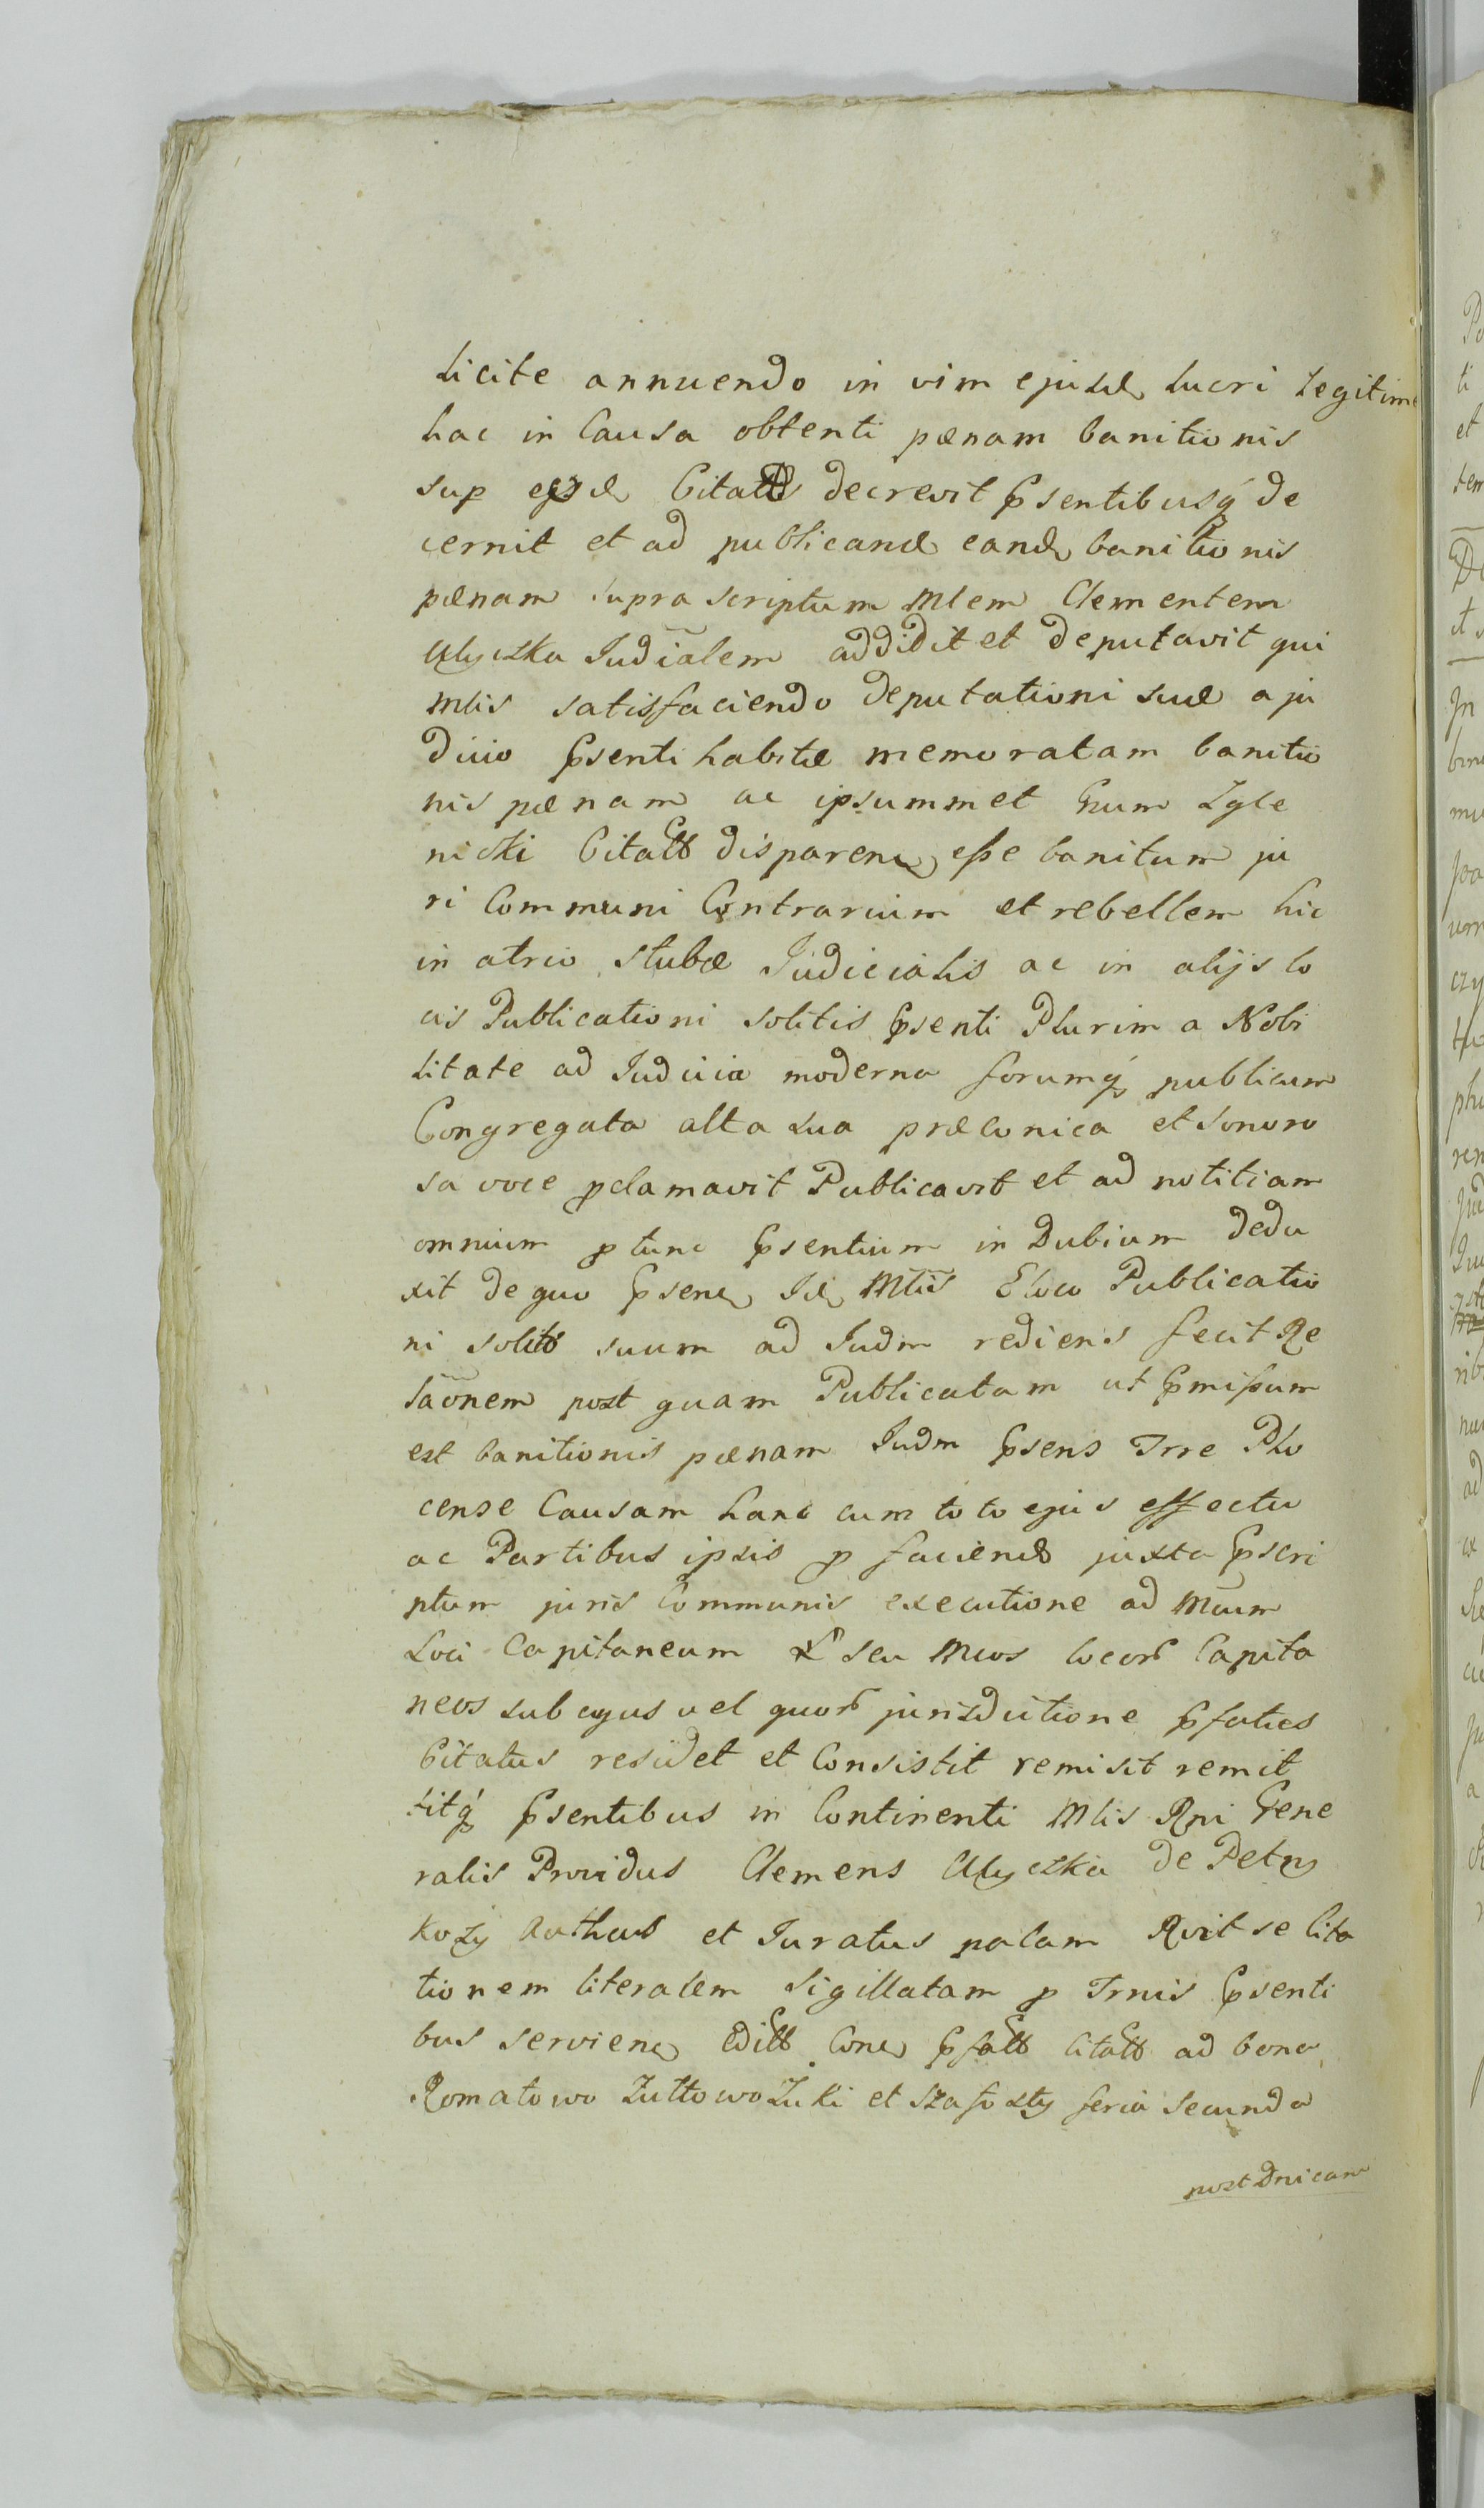 licite annuendo in vim ejusd lucri legitime
hac in Causa obtenti pænam banitionis
sup ejusd Citatt decrevit Psentibusq de
cernit et ad publicand eand banitionis
pænam supra scriptum Mlem Clementem
Ulyczka Judialem addidit et deputavit qui
Mlis satisfaciendo deputationi suæ a ju
dicio Psenti habitæ memoratam banitio
nis pænam ac ipsummet Gnum Zgle
nicki Citatt disparen esse banitum ju
ri Communi Contrarium et rebellem hic
in atrio stubæ Judicialis ac in alijs lo
cis Publicationi solitis Psenti Plurima Nobi
litate ad Judicia moderna forumq publicum
Congregata alta sua præconica et sonoro
sa voce pclamavit Publicavit et ad notitiam
omnium p tunc Psentium in Dubium dedu
xit de quo Psen Id Mlis Eloco Publicatio
ni solito suum ad Judm rediens fecit Re
laonem post quam Publicatam ut Pmissum
est banitionis pænam Judm Psens Trre Plo
cense Causam hanc cum toto ejus effectu
ac Partibus ipsis p faciend juxta Pscri
ptum juris Communis executione ad Mcum
Loci Capitaneum seu Mcos locor Capita
neos sub cujus vel quor jurisdictione Pfatus
Citatus residet et Consistit remisit remit
titq Psentibus in Continenti Mlis Rni Gene
ralis Providus Clemens Ulyczka de Petry
kozy Authus et Juratus palam Rvit se Cita
tionem literalem Sigillatam p Trnis Psenti
bus servien Editt Con Pfatt Citatt ad bona
Romatowo Zuttowo Zuki et Szafszty feria secunda
post Dnicam